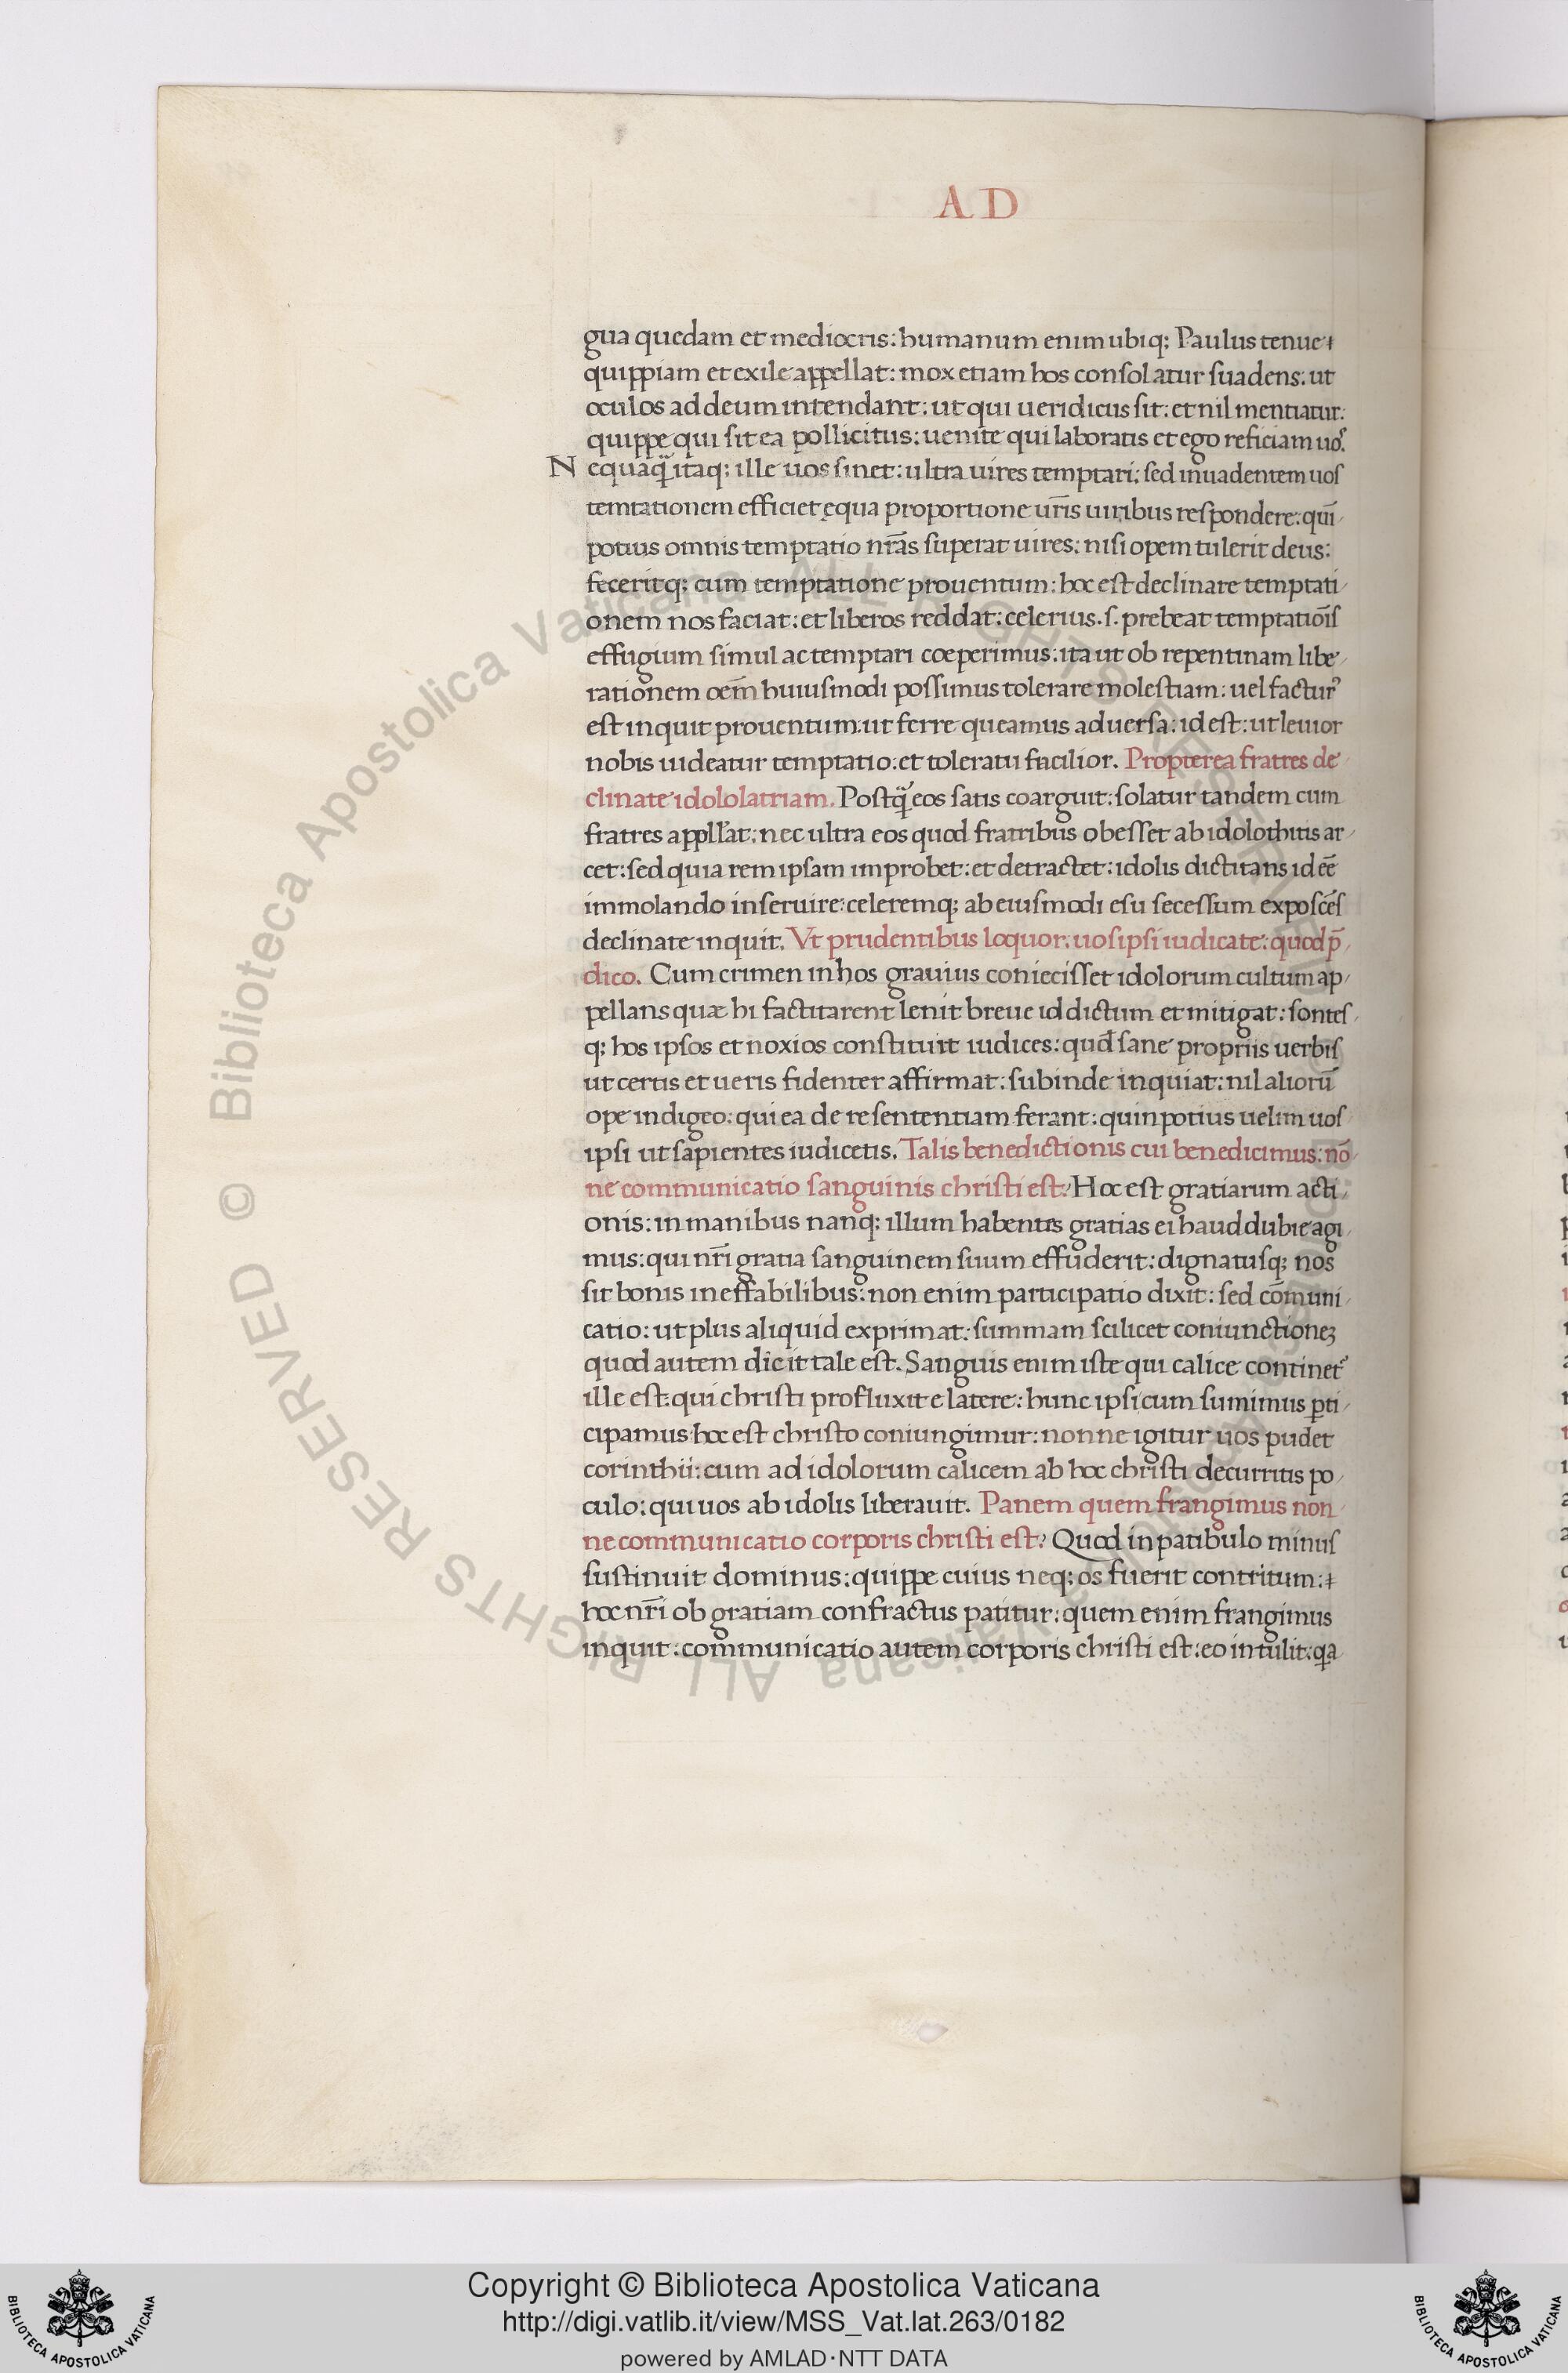 A D
gua quedam et mediocris: humanum enim ubiq; Paulus tenue
quippiam et exile appellat: mox etiam hos consolatur suadens: ut
oculos ad deum intendant: ut qui ueridicus sit: et nil mentiatur:
quippe qui sit ea pollicitus: uenite qui laboratis et ego reficiam uos.
Nequaq̃ itaq; ille uos sinet: ultra uires temptari: sed inuadentem uos
temtationem efficiet ęqua proportione ur̄is uiribus respondere: quī
potius omnis temptatio nr̄as superat uires: nisi opem tulerit deus:
feceritq; cum temptatione prouentum: hoc est declinare temptati
onem nos faciat: et liberos reddat: celerius .s. prebeat temptatiōis
effugium simul ac temptari coeperimus: ita ut ob repentinam libe
rationem oem̄ huiusmodi possimus tolerare molestiam: uel factur᾽
est inquit prouentum: ut ferre queamus aduersa: id est: ut leuior
nobis uideatur temptatio: et toleratu facilior. Propterea fratres de
clinate idololatriam. Postq̃ eos satis coarguit: solatur tandem cum
fratres appll'at: nec ultra eos quod fratribus obesset ab idolothitis ar
cet: sed quia rem ipsam improbet: et detractet: idolis dictitans id eē
immolando inseruire: celeremq; ab eiusmodi esu secessum exposcēs
declinate inquit. Vt prudentibus loquor: uos ipsi iudicate: quod p̄
dico. Cum crimen in hos grauius coniecisset idolorum cultum ap
pellans quæ hi factitarent lenit breue id dictum et mitigat: sontes
q; hos ipsos et noxios constituit iudices: qud̄ sane propriis uerbis
ut certis et ueris fidenter affirmat: subinde inquiat: nil aliorū
ope indigeo: qui ea de re sententiam ferant: quin potius uelim uos
ipsi ut sapientes iudicetis. Talis benedictionis cui benedicimus: nō
ne communicatio sanguinis christi est? Hoc est gratiarum acti
onis: in manibus nanq; illum habentes gratias ei haud dubie agi
mus: qui nr̄i gratia sanguinem suum effuderit: dignatusq; nos
sit bonis ineffabilibus: non enim participatio dixit: sed cōmuni
catio: ut plus aliquid exprimat: summam scilicet coniunctioneʒ
quod autem dicit tale est. Sanguis enim iste qui calice continet᾽
ille est: qui christi profluxit e latere: hunc ipsi cum sumimus ꝑti
cipamus: hoc est christo coniungimur: nonne igitur uos pudet
corinthii: cum ad idolorum calicem ab hoc christi decurritis po
culo: qui uos ab idolis liberauit. Panem quem frangimus non
ne communicatio corporis christi est? Quod in patibulo minus
sustinuit dominus: quippe cuius neq; os fuerit contritum:
hoc nr̄i ob gratiam confractus patitur: quem enim frangimus
inquit: communicatio autem corporis christi est: eo intulit: qa
© Biblioteca Apostolica Vaticana ALL RIGHTS RESERVED © Biblioteca Apostolica Vaticana ALL RIGHTS RESERVED
Copyright © Biblioteca Apostolica Vaticana
http://digi.vatlib.it/view/MSS_Vat.lat.263/0182
powered by AMLAD·NTT DATA
BIBLIOTECA APOSTOLICA VATICANA
BIBLIOTECA APOSTOLICA VATICANA